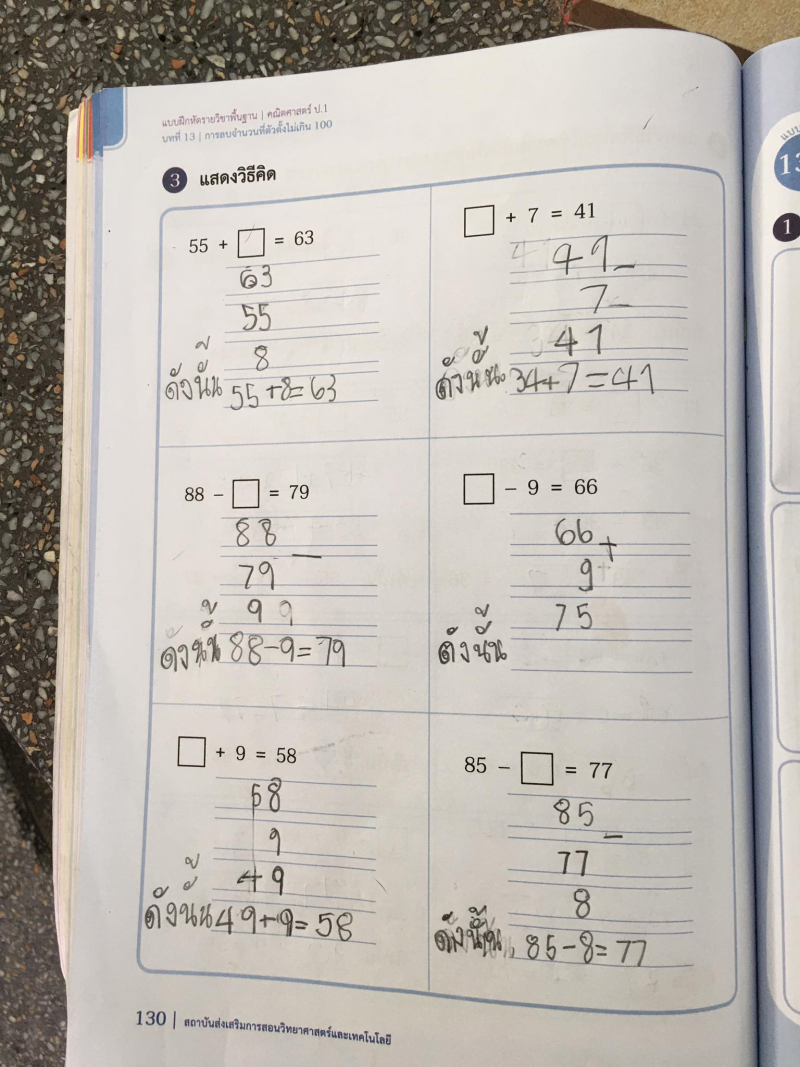 แบบฝึกหัดรายวิชาพื้นฐาน | คณิตศาสตร์ ป.1
บทที่ 13 | การลบจำนวนที่ตัวตั้งไม่เกิน 100
3 แสดงวิธีคิด
55 + □ = 63
63
55
8
ดังนั้น 55+8=63
□ + 7 = 41
41 -
7 -
41
ดังนั้น 34+7=41
88 – □ = 79
88
-
79
9 9
ดังนั้น 88-9=79
□ – 9 = 66
66
+
9 +
75
ดังนั้น
□ + 9 = 58
58
9
49
ดังนั้น 49+9=58
85 – □ = 77
85
-
77
8
ดังนั้น 85-8=77
130 | สถาบันส่งเสริมการสอนวิทยาศาสตร์และเทคโนโลยี
1